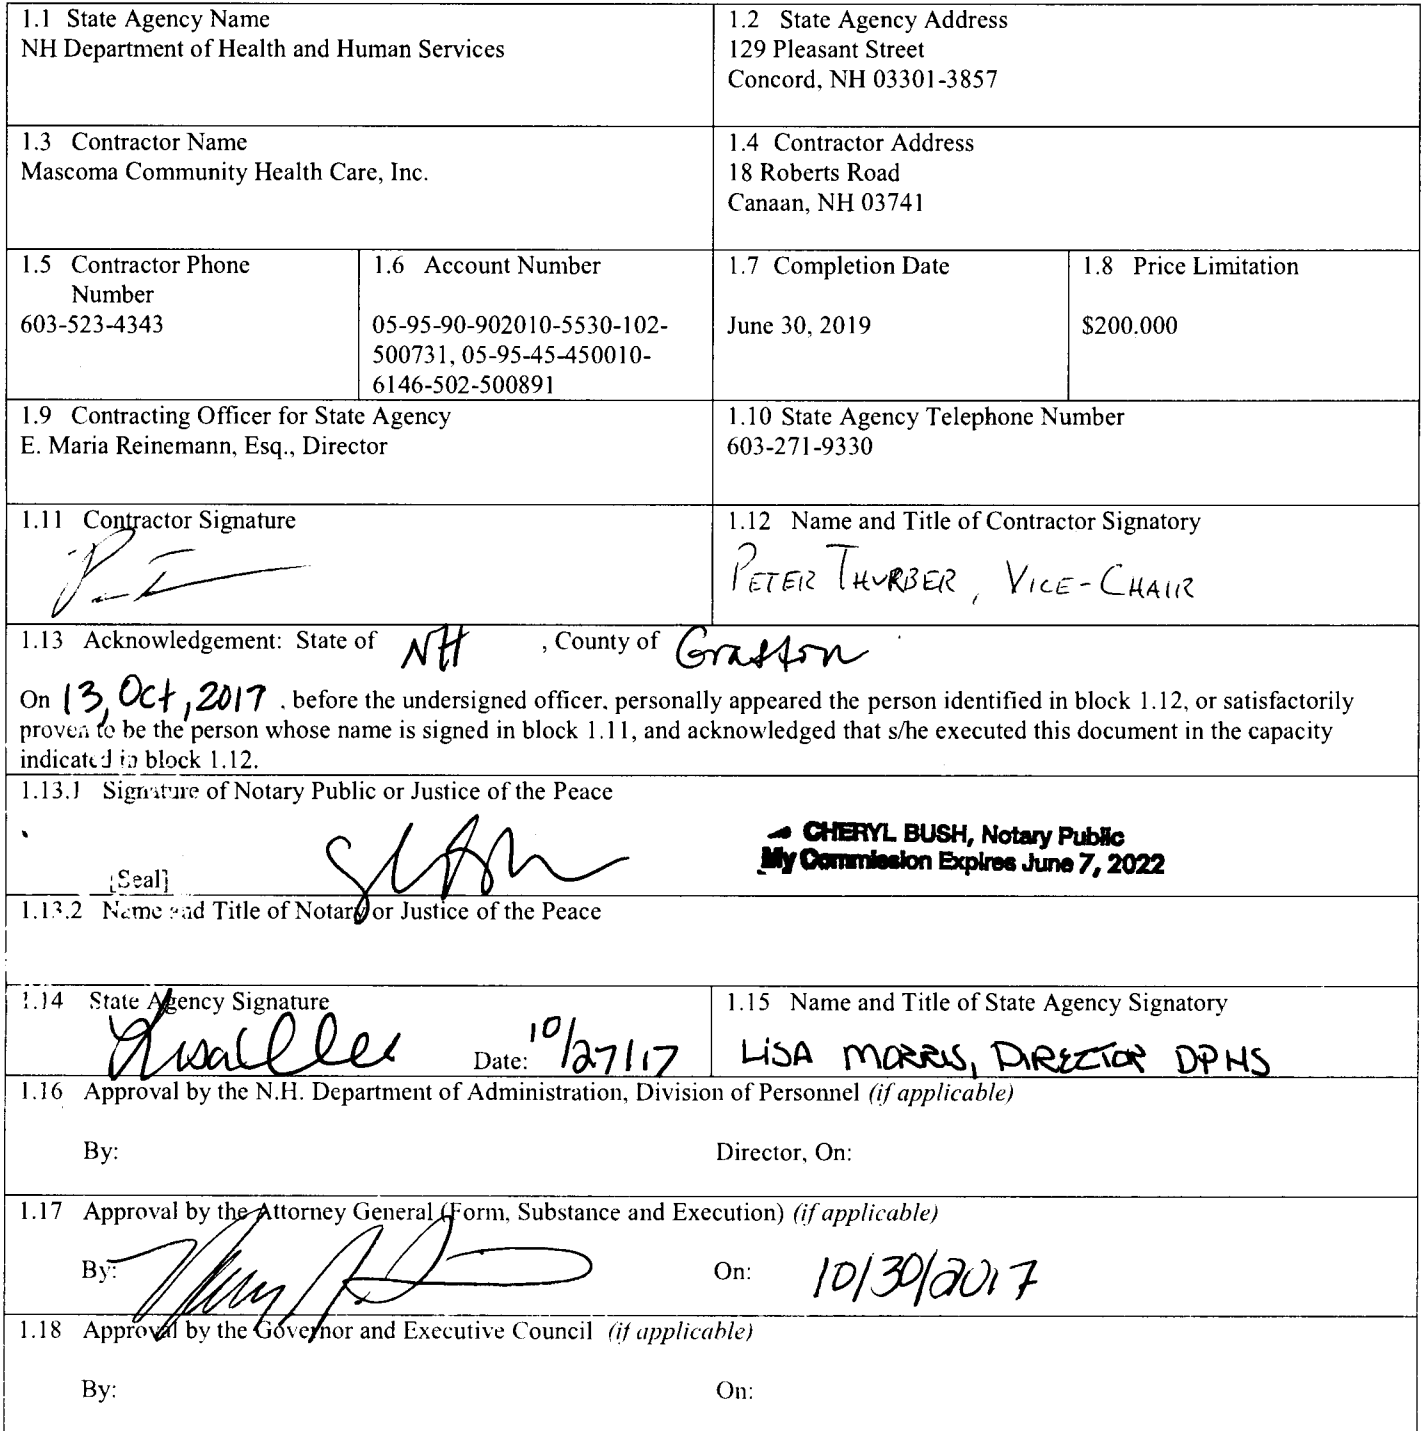 1.1 State Agency Name
NH Department of Health and Human Services
1.2 State Agency Address
129 Pleasant Street
Concord, NH 03301-3857
1.3 Contractor Name
Mascoma Community Health Care, Inc.
1.4 Contractor Address
18 Roberts Road
Canaan, NH 03741
1.5 Contractor Phone
Number
603-523-4343
1.6 Account Number
05-95-90-902010-5530-102-
500731, 05-95-45-450010-
6146-502-500891
1.7 Completion Date
June 30, 2019
1.8 Price Limitation
$200.000
1.9 Contracting Officer for State Agency
E. Maria Reinemann, Esq., Director
1.10 State Agency Telephone Number
603-271-9330
1.11 Contractor Signature
1.12 Name and Title of Contractor Signatory
PETER THURBER, VICE-CHAIR
1.13 Acknowledgement: State of NH , County of Grafton
On 13, Oct, 2017 , before the undersigned officer, personally appeared the person identified in block 1.12, or satisfactorily
proven to be the person whose name is signed in block 1.11, and acknowledged that s/he executed this document in the capacity
indicated in block 1.12.
1.13.1 Signature of Notary Public or Justice of the Peace
CHERYL BUSH, Notary Public
My Commission Expires June 7, 2022
[Seal]
1.13.2 Name and Title of Notary or Justice of the Peace
1.14 State Agency Signature
Date: 10/27/17
1.15 Name and Title of State Agency Signatory
LISA MORRIS, DIRECTOR DPHS
1.16 Approval by the N.H. Department of Administration, Division of Personnel (if applicable)
By: Director, On:
1.17 Approval by the Attorney General (Form, Substance and Execution) (if applicable)
By: On: 10/30/2017
1.18 Approval by the Governor and Executive Council (if applicable)
By: On: